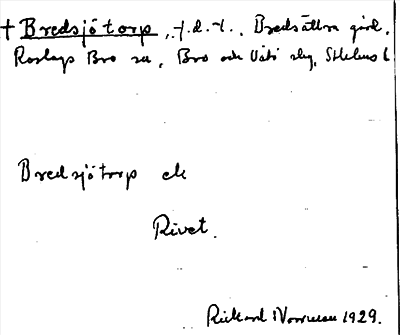 † Bredsjötorp, f.d. t., Bredsättra gård,
Roslags Bro sn, Bro och Vätö slg, Sthlms l
Bredsjötorp ek
Rivet.
Rickard Norrman 1929.